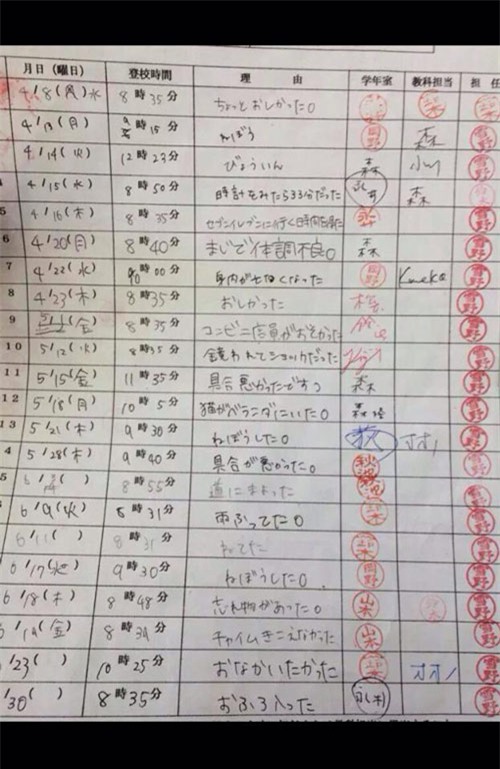 月日(曜日) 登校時間 理由 学年室 教科担当 担任
4/8(水) 8時35分 ちょっとおしかった。
4/13(月) 9時15分 ねぼう 岡野 森 雪野
4/14(火) 12時23分 びょういん 森 小川 雪野
4/15(水) 8時50分 時計をみたら33分だった 森 雪野
5 4/16(木) 8時35分 セブンイレブンに行く時間 雪野
6 4/20(月) 8時40分 まじで体調不良。 森 雪野
7 4/22(水) 時00分 身内が亡くなった 岡野 雪野
8 4/23(木) 8時35分 おしかった 雪野
9 (金) 8時35分 コンビニ店員がおそかった 雪野
10 5/12(火) 8時35分 鏡われてショックだった 雪野
11 5/15(金) 11時35分 具合悪かったですっ 森 雪野
12 5/18(月) 10時5分 猫がベランダにいた。 雪野
13 5/21(木) 9時30分 ねぼうした。 雪野
4 5/28(木) 9時40分 具合が悪かった。 秋池 雪野
5 8時55分 道にまよった 秋池 雪野
6/9(火) 8時31分 雨ふってた。 雪野
6/11( ) 8時31分 ねてた 雪野
6/17(水) 9時30分 ねぼうした。 岡野 雪野
6/18(木) 8時48分 忘れ物があった。 山木 雪野
6/19(金) 8時39分 チャイムきこえなかった 山木 雪野
/23( ) 10時25分 おなかいたかった 雪野
/30( ) 8時35分 おふろ入った 雪野